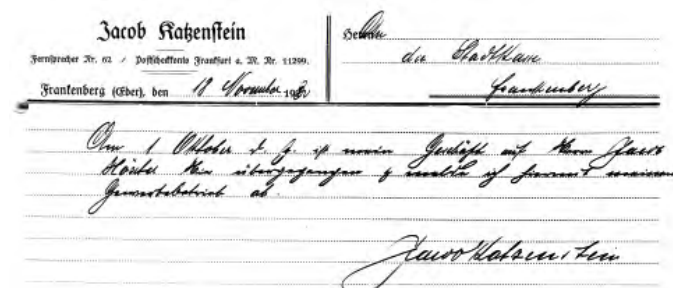 Jacob Katzenstein
Fernsprecher Nr. 62 / Postscheckkonto Frankfurt a. M. Nr. 11299.
Frankenberg (Eder), den 18 November 19
Herrn An
die Stadtkasse
Frankenberg
Am 1 Oktober d. J. ist mein Geschäft auf Herrn Jacob
hier übergegangen & melde ich hiermit meinen
Gewerbebetrieb ab.
Jacob Katzenstein